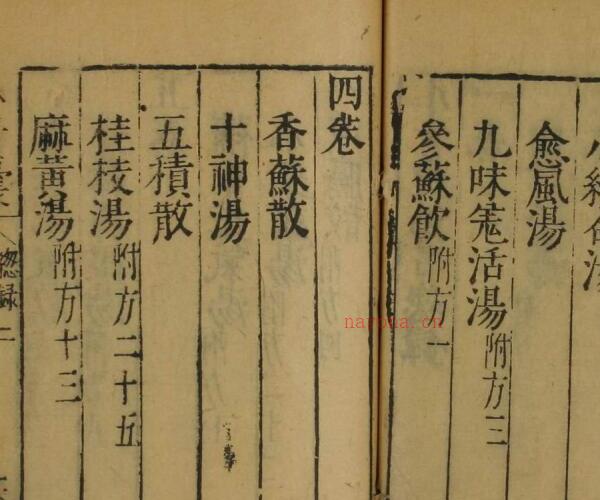 愈風湯
九味羌活湯附方三
參蘇飲附方一
四卷
香蘇散
十神湯
五積散
桂枝湯附方二十五
麻黃湯附方十三
總録 二
nayona.cn